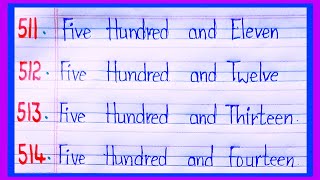 511. Five Hundred and Eleven
512. Five Hundred and Twelve
513. Five Hundred and Thirteen.
514. Five Hundred and Fourteen